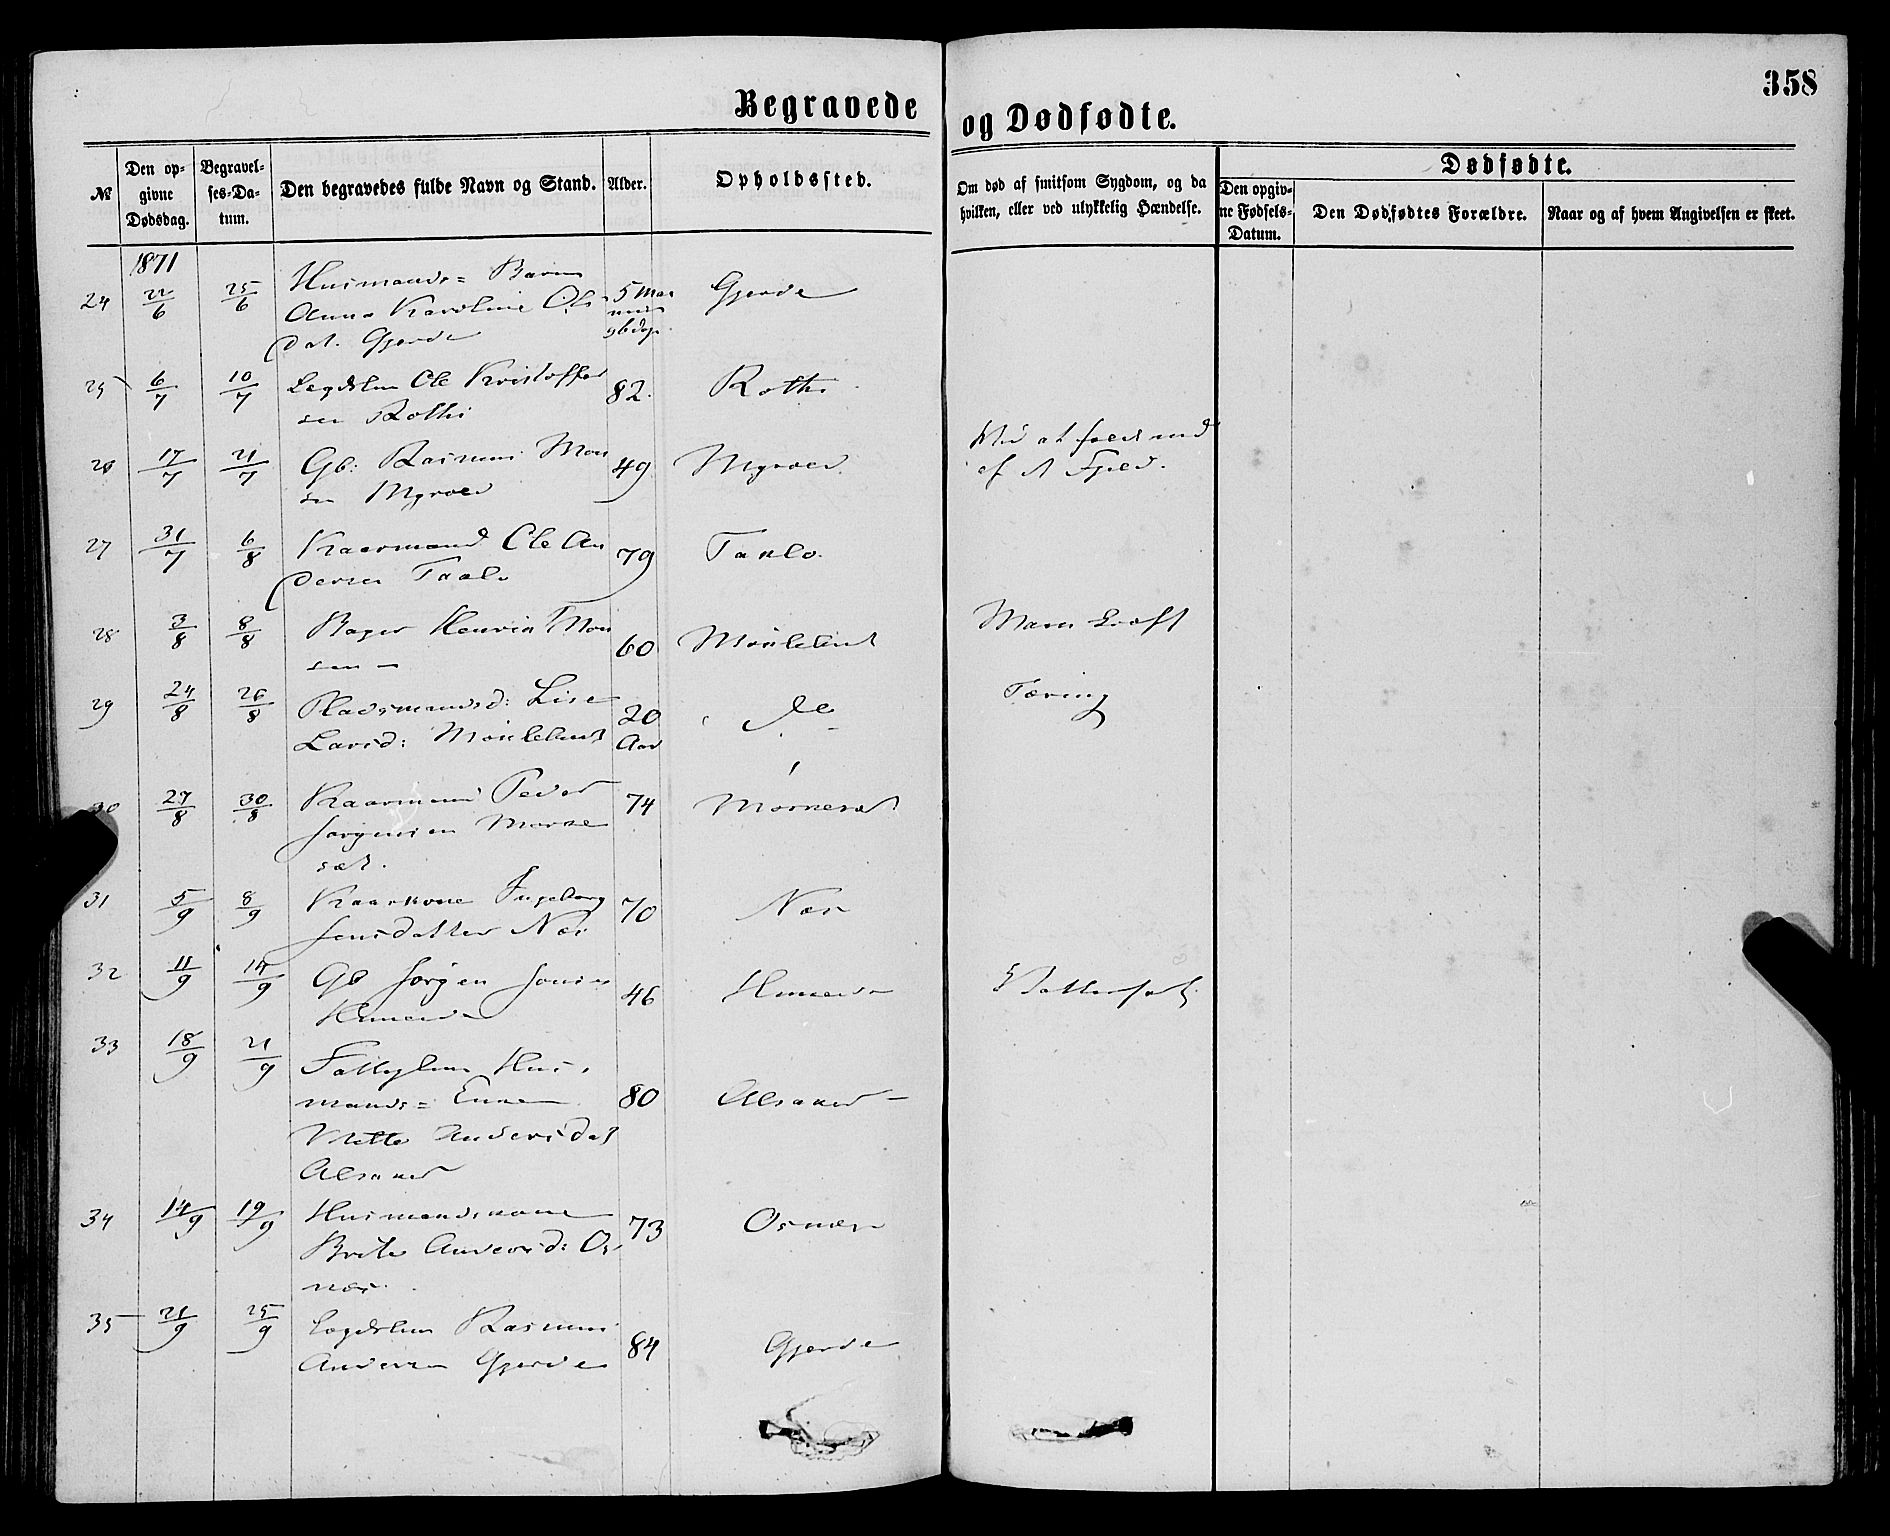 358
Begravede og Dødfødte.
Dødfødte.
№
Den opgivne Dødsdag.
Begravelses-Datum.
Den begravedes fulde Navn og Stand.
Alder.
Opholdssted.
Om død af smitsom Sygdom, og da
hvilken, eller ved ulykkelig Hændelse.
Den opgivne Fødsels-Datum.
Den Dødfødtes Forældre.
Naar og af hvem Angivelsen er skeet.
1871
24 22/6 25/6 Husmands= Barn 5 Maa Gjerde
Anna Karoline Ols
dat. Gjerde
25 6/7 10/7 Lægdslem Ole Kristoffer 82. Rothi
sen Rothi
26 17/7 21/7 Gb: Rasmus Mon 49 Myrvold Ved at falde ned
sen Myrvold af et Fjeld.
27 31/7 6/8 Kaarmand Ole An 79 Taklo
dersen Taklo
28 3/8 8/8 Bager Henrik Mon 60
sen
29 24/8 26/8 Pladsmandsd: Lise 20 do Tæring
Larsd: Aar
30 27/8 30/8 Kaarmand Peder 74
Jørgensen
sæt.
31 5/9 8/9 Kaarkone Ingeborg 70 Næs
Jensdatter Næs
32 11/9 14/9 Gb Jørgen 46
33 18/9 21/9 Fattiglem Hus
mands= Enke 80 Alsaker
Mette Andersdat
Alsaker
34 14/9 19/9 Husmandskone 73 Osnes
Brite Andersd: Os
nes.
35 21/9 25/9 Lægdslem Rasmus 84 Gjerde
Andersen Gjerde